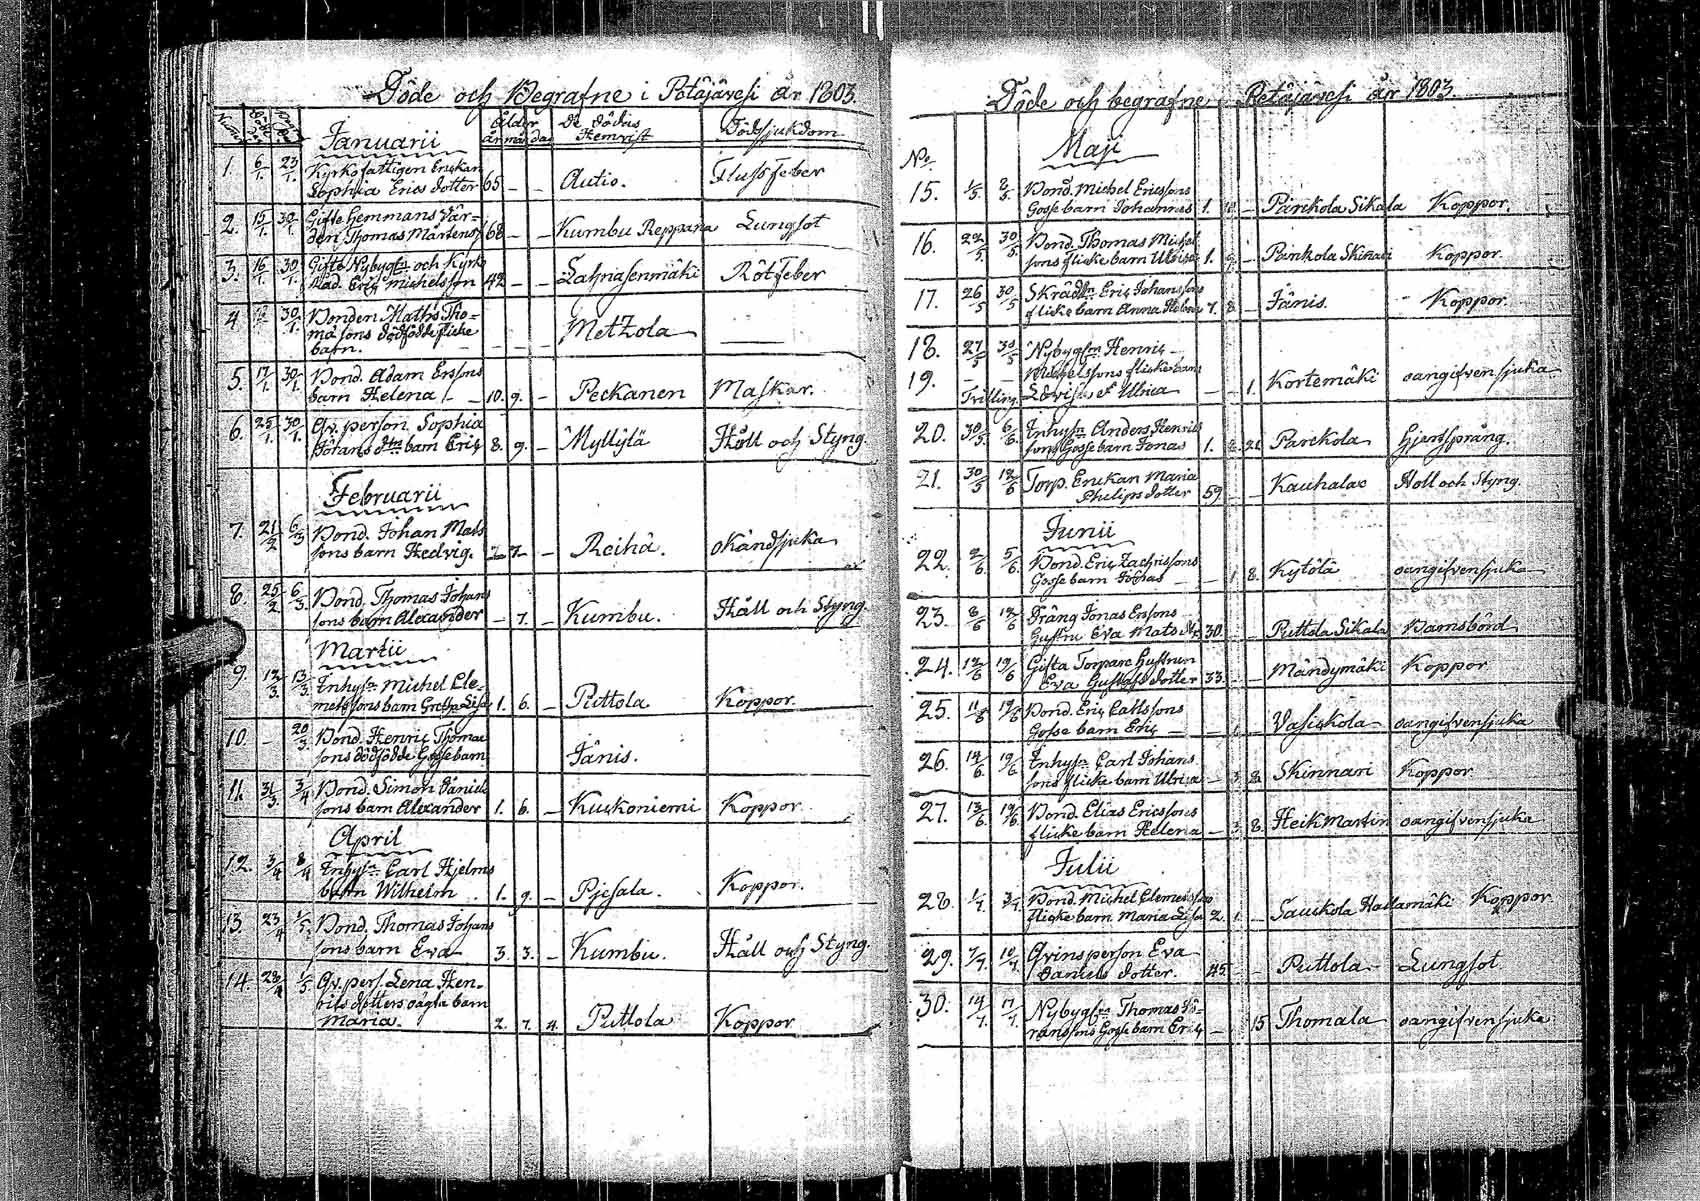 Döde och Begrafne i Petäjävesi år 1803.
Ålder De Dödas Dödssjukdom
år mån dag Hemvist
Januarii
1. 6/1. 23/1. Kyrkofattigen Enckan
Sophia Erics dotter 65 - - Autio. Fluss feber
2. 15/1. 30/1. Gifte Hemmans Vär=
den Thomas Mårtens 68 - - Kumbu Reppana Lungsot
3. 16/1. 30/1. Gifte Nybyg och Kyrk
Eriç Michelsson 42 - - Rötfeber
4 30/1. Bonden Maths Tho=
mä sons dödfödde flicke
barn. - - - - Metzola
5. 17/1. 30/1. Bond. Adam Erssons
barn Helena - - 10. 9. - Peckanen Maskar.
6. 25/1. 30/1. Qv. person Sophia
Johans dtr barn Eriç 8. 9. - Myllylä Håll och Styng
Februarii
7. 21/2 6/3 Bond. Johan Mats
sons barn Hedvig. 2. 7. - Reihä. okändsjuka
8. 25/2 6/3 Bond. Thomas Johans
sons barn Alexander - 7. - Kumbu. Håll och Styng.
Martii
9. 12/3. 13/3. Inhys Michel Cle=
metssons barn Gretha Lisa 1. 6. - Puttola Koppor.
10. - 20/3. Bond. Henriç Thomæ
sons dödfödde Gossebarn Jänis.
11. 31/3. 3/4 Bond. Simon Daniels
sons barn Alexander 1. 6. - Kuckoniemi Koppor.
April
12. 3/4 8/4 Inhys Carl Hjelms
barn Wilhelm 1. 9. - Pjesala. Koppor.
13. 23/4 1/5. Bond. Thomas Johans
sons barn Eva 3. 3. - Kumbu. Håll och Styng.
14. 28/4 1/5 Qv. pers. Lena Hen=
riks dotters oägta barn
Maria. 2. 7. 4. Puttola Koppor
Döde och begrafne i Petäjävesi år 1803.
No. Maji
15. 1/5. 8/5. Bond. Michel Ericssons
Gosse barn Johannes 1. - Parckola Sikala Koppor.
16. 22/5. 30/5 Bond. Thomas Michel
sons flicke barn Ulrica 1. - Koppor.
17. 26/5 30/5 Skräd Eriç Johanssons
flicke barn Anna Helena 7. 8. - Jänis. - Koppor.
18. 27/5 30/5 Nybyg Henriç
19. - - Michelssons flicke barn
Tvilling. Lovisa et Ulrica - - 1. Kortemäki oangifven sjuka
20. 30/5. 6/6. Inhys Anders Henrics
sons Gosse barn Jonas 1. Parckola Hjertsprång.
21. 30/5 12/6 Torp. Enckan Maria
Philips dotter 59. - - Kauhalae Håll och Styng.
Junii
22. 2/6. 5/6. Bond. Eriç Zachrissons
Gosse barn Johas - - 1. 8. Kytölä oangifvensjuka
23. 8/6 12/6 Dräng Jonas Erssons
Gustru Eva Mats dtr 30. - - Puttola Sikala Barnsbörd
24. 12/6 19/6 Gifta Torpare Hustrun
Eva Gustafs dotter 33. - - Mändymäki Koppor
25. 11/6 19/6 Bond. Eriç Callssons
Gosse barn Eriç - - 1. - Vasickola oangifvensjuka
26. 14/6. 19/6 Inhys Carl Johans
sons flicke barn Ulrica - 3. 8. Skinnari Koppor
27. 13/6. 19/6. Bond. Elias Ericssons
flicke barn Helena - 3. 8. Heik Martin oangifvensjuka
Julii
28. 1/7. 3/7. Bond. Michel Clemetsson
flicke barn Maria Lisa 2. 1. - Sauckola Hallamäki Koppor
29. 7/7. 10/7. Qvinsperson Eva
Daniels dotter. 45. - - Puttola Lungsot
30. 14/7. 17/7. Nybyg Thomas Jö=
ranssons Gosse barn Eriç - 15 Thomala oangifvensjuka.